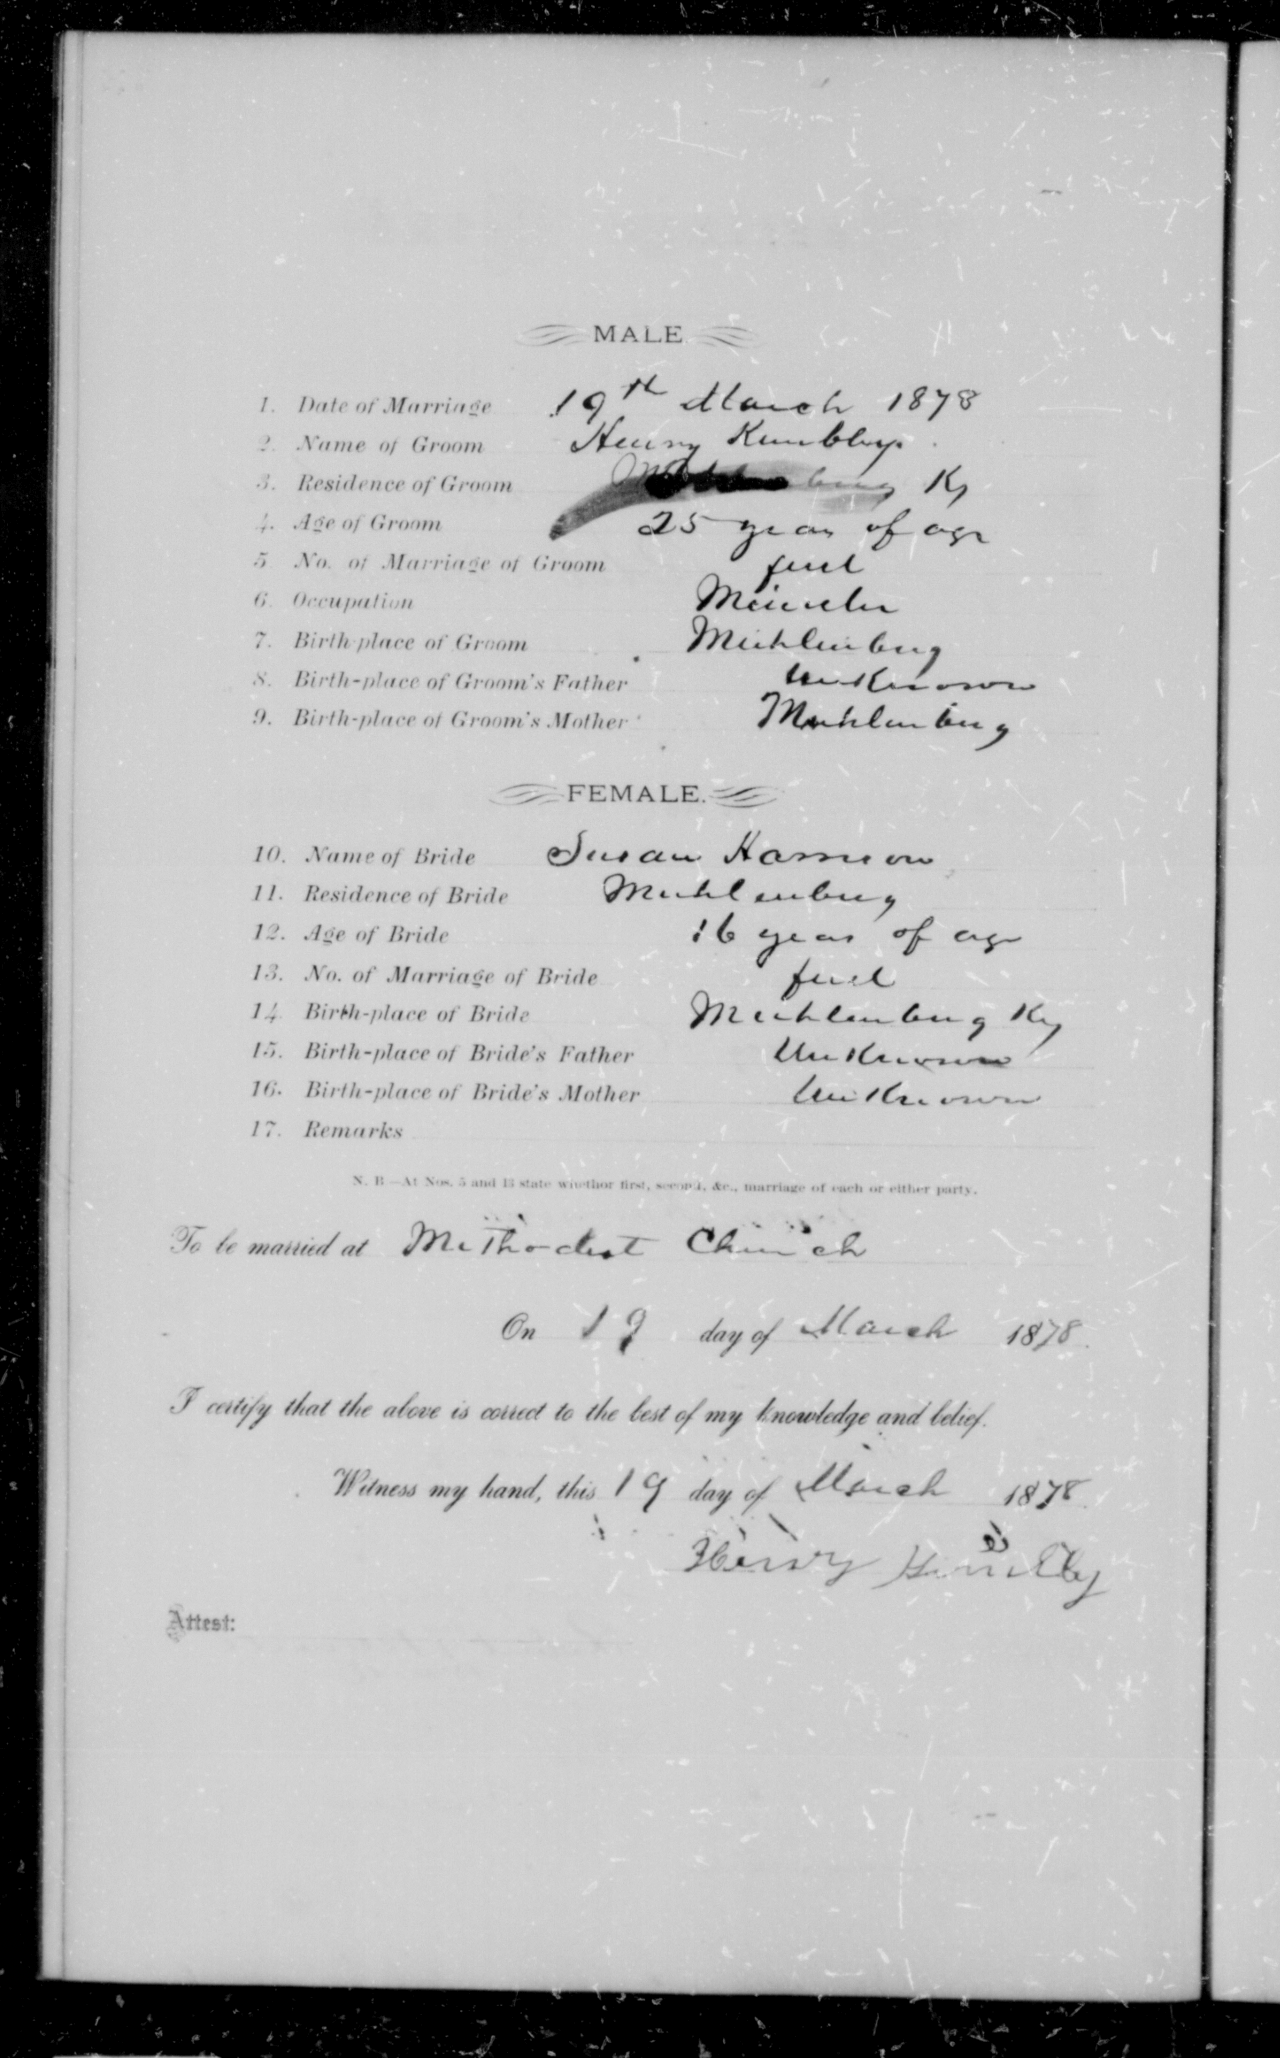 MALE.
1. Date of Marriage 19th March 1878
2. Name of Groom Henry
3. Residence of Groom Ky
4. Age of Groom 25 years of age
5. No. of Marriage of Groom first
6. Occupation
7. Birth-place of Groom Muhlenberg
8. Birth-place of Groom's Father Unknown
9. Birth-place of Groom's Mother Muhlenberg
FEMALE.
10. Name of Bride Susan Harrison
11. Residence of Bride Muhlenberg
12. Age of Bride 16 years of age
13. No. of Marriage of Bride first
14. Birth-place of Bride Muhlenberg Ky
15. Birth-place of Bride's Father Unknown
16. Birth-place of Bride's Mother Unknown
17. Remarks
N. B.—At Nos. 5 and 13 state whether first, second, &c., marriage of each or either party.
To be married at Methodist Church
On 19 day of March 1878.
I certify that the above is correct to the best of my knowledge and belief.
Witness my hand, this 19 day of March 1878
Henry
Attest: